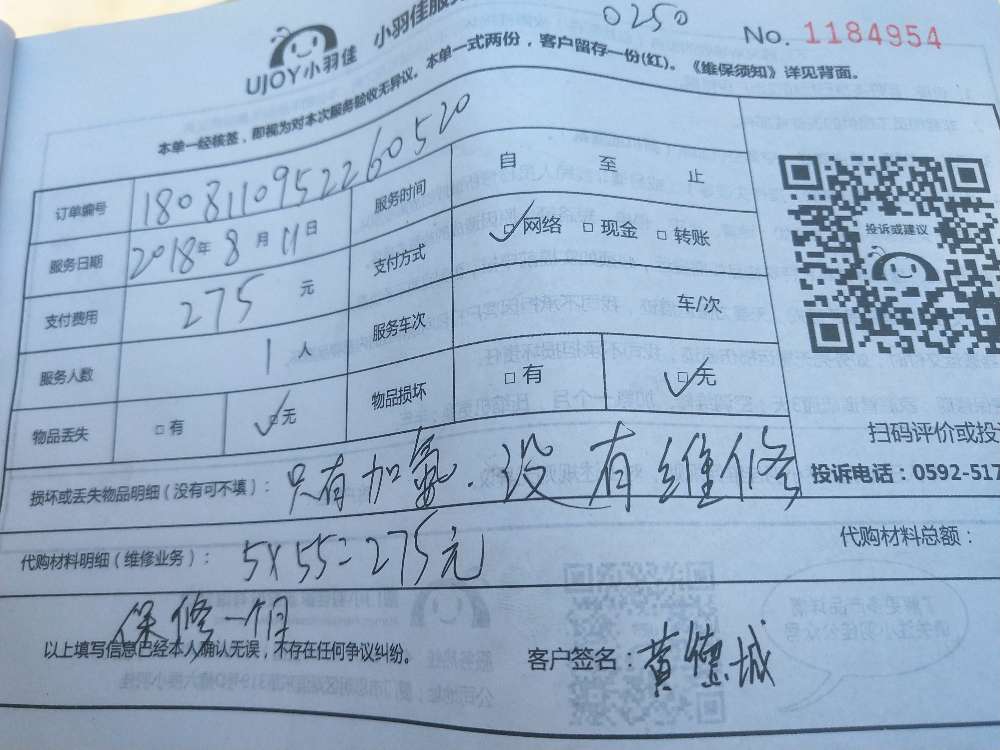 0250
UJOY小羽佳 小羽佳服务
No. 1184954
本单一经核签，即视为对本次服务验收无异议。本单一式两份，客户留存一份(红)。《维保须知》详见背面。
订单编号 18081109522260520 服务时间 自 至 止
服务日期 2018年8月11日 支付方式 网络 现金 转账
支付费用 275 元 服务车次 车/次
服务人数 1 人 物品损坏 有 无
物品丢失 有 无
投诉或建议
扫码评价或投
投诉电话：0592-517
损坏或丢失物品明细（没有可不填）： 只有加氟.没有维修
代购材料明细（维修业务）： 5×55=275元 代购材料总额：
保修一个月
以上填写信息已经本人确认无误，不存在任何争议纠纷。 客户签名：黄德城